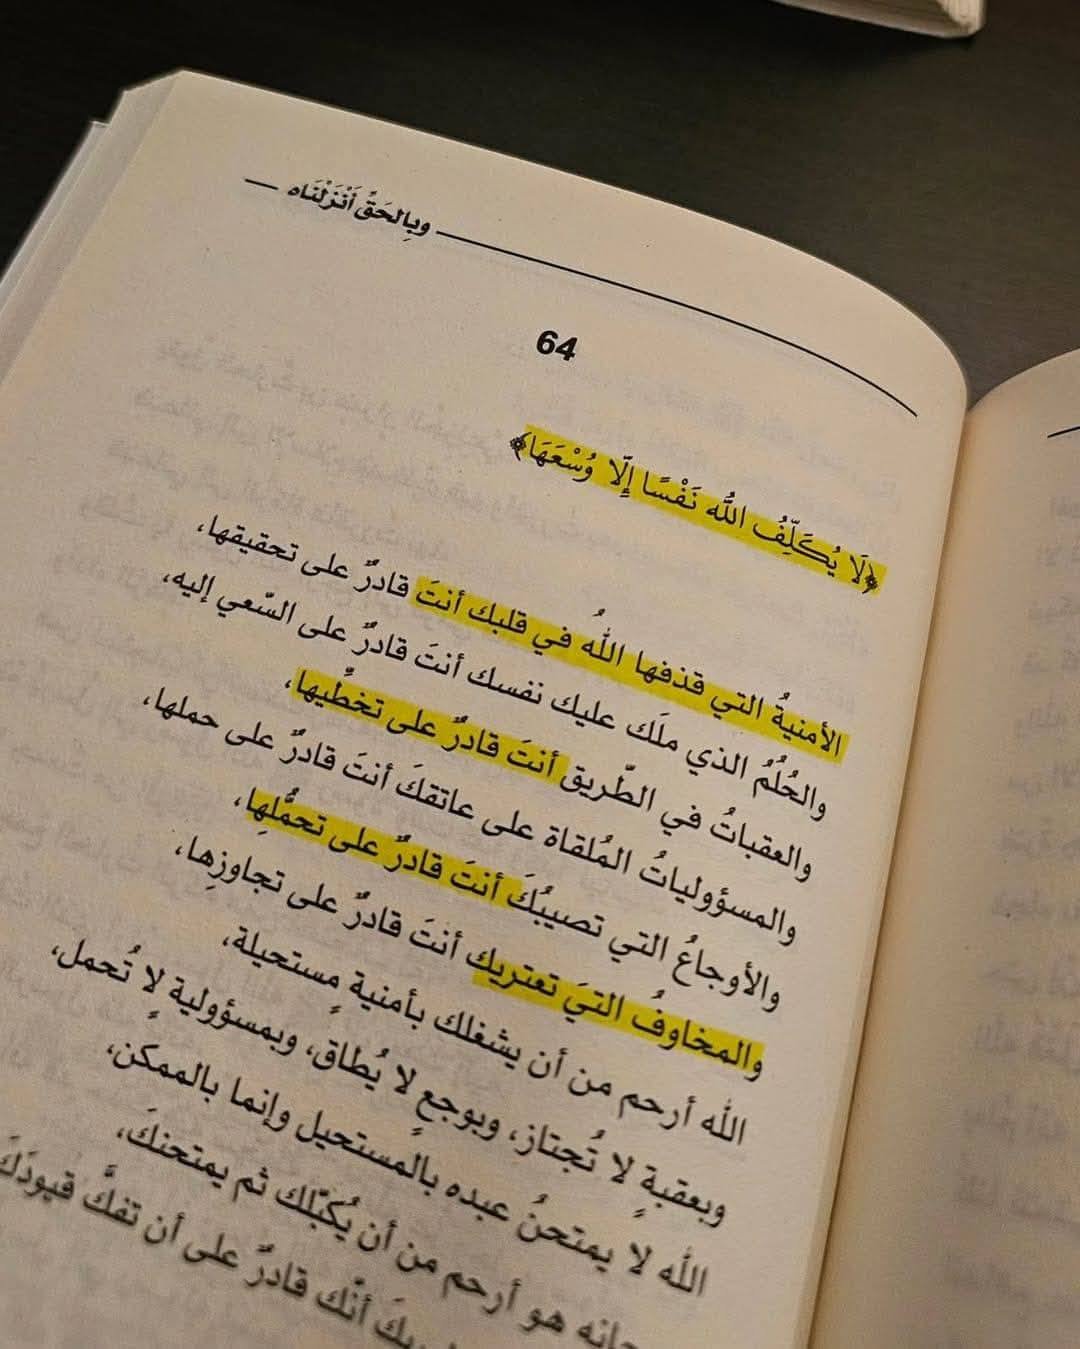 وبِالحَقِّ أَنْزَلْنَاه
64
﴿لَا يُكَلِّفُ اللَّه نَفْسًا إِلَّا وُسْعَهَا﴾
الأمنيةُ التي قذفها اللهُ في قلبك أنتَ قادرٌ على تحقيقها،
والحُلُمُ الذي ملَك عليك نفسك أنتَ قادرٌ على السّعي إليه،
والعقباتُ في الطّريق أنتَ قادرٌ على تخطِّيها،
والمسؤولياتُ المُلقاة على عاتقكَ أنتَ قادرٌ على حملها،
والأوجاعُ التي تصيبُكَ أنتَ قادرٌ على تحمُّلِها،
والمخاوفُ التيَ تعتريك أنتَ قادرٌ على تجاوزِها،
الله أرحم من أن يشغلك بأمنية مستحيلة،
وبعقبةٍ لا تُجتاز، وبوجعٍ لا يُطاق، وبمسؤولية لا تُحمل،
الله لا يمتحنُ عبده بالمستحيل وإنما بالممكن،
هو أرحم من أن يُكبّلك ثم يمتحنكَ،
أنّك قادرٌ على أن تفكَّ قيودَكَ